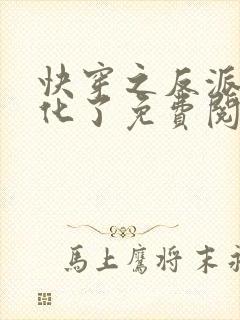 快穿之反派
化了免費閱
馬上鷹将末